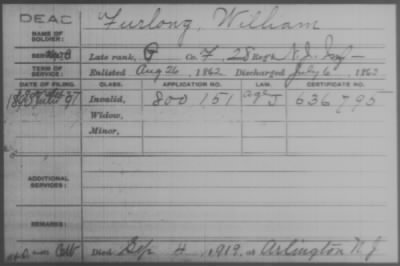 DEAC
Furlong, William
NAME OF SOLDIER:
SERVICE: Late rank, P Co. F, 28 Reg't N.J. Inf
TERM OF SERVICE: Enlisted Aug 26, 1862 Discharged July 6, 1863
DATE OF FILING. CLASS. APPLICATION NO. LAW. CERTIFICATE NO.
Invalid, 800 151 age J 636,795
Widow,
Minor,
ADDITIONAL SERVICES:
REMARKS:
Died Sep 4, 1919, at Arlington N.J